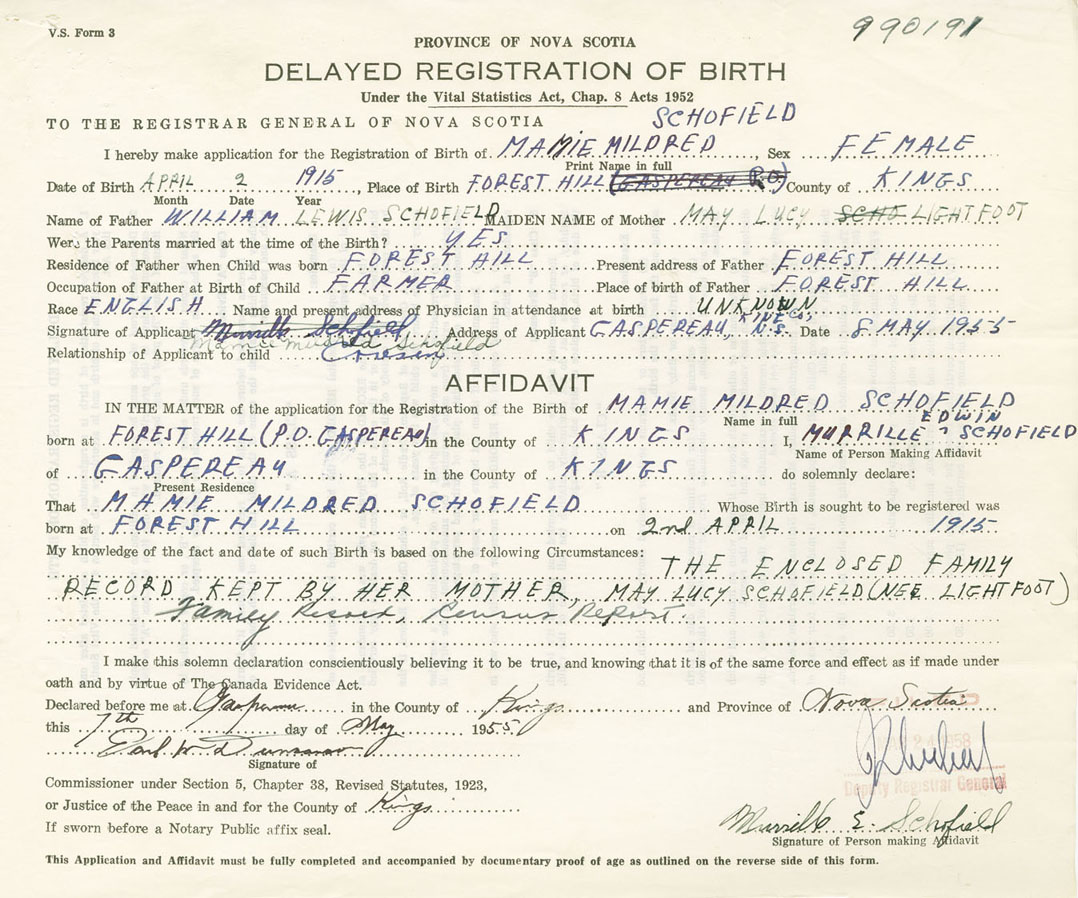 V.S. Form 3
990191
PROVINCE OF NOVA SCOTIA
DELAYED REGISTRATION OF BIRTH
Under the Vital Statistics Act, Chap. 8 Acts 1952
TO THE REGISTRAR GENERAL OF NOVA SCOTIA
SCHOFIELD
I hereby make application for the Registration of Birth of MAMIE MILDRED, Sex FEMALE
Print Name in full
Date of Birth APRIL 2 1915, Place of Birth FOREST HILL (GASPEREAU P.O.) County of KINGS
Month Date Year
Name of Father WILLIAM LEWIS SCHOFIELD MAIDEN NAME of Mother MAY LUCY SCHO LIGHTFOOT
Were the Parents married at the time of the Birth? YES
Residence of Father when Child was born FOREST HILL Present address of Father FOREST HILL
Occupation of Father at Birth of Child FARMER Place of birth of Father FOREST HILL
Race ENGLISH Name and present address of Physician in attendance at birth UNKNOWN
KINGS CO,
Signature of Applicant Murrille Schofield Address of Applicant GASPEREAU, N.S. Date 8 MAY 1955
Mamie Mildred Schofield
Relationship of Applicant to child Cousin
AFFIDAVIT
IN THE MATTER of the application for the Registration of the Birth of MAMIE MILDRED SCHOFIELD
Name in full
EDWIN
born at FOREST HILL (P.O. GASPEREAU) in the County of KINGS I, MURRILLE SCHOFIELD
Name of Person Making Affidavit
of GASPEREAU in the County of KINGS do solemnly declare:
Present Residence
That MAMIE MILDRED SCHOFIELD Whose Birth is sought to be registered was
born at FOREST HILL on 2nd APRIL 1915
My knowledge of the fact and date of such Birth is based on the following Circumstances:
THE ENCLOSED FAMILY
RECORD KEPT BY HER MOTHER, MAY LUCY SCHOFIELD (NEE LIGHTFOOT)
Family Record, Census Report.
I make this solemn declaration conscientiously believing it to be true, and knowing that it is of the same force and effect as if made under
oath and by virtue of The Canada Evidence Act.
Declared before me at Gaspereau in the County of Kings and Province of Nova Scotia
this 7th day of May 1955
Earl W
Signature of
Commissioner under Section 5, Chapter 38, Revised Statutes, 1923,
Deputy Registrar General
or Justice of the Peace in and for the County of Kings
If sworn before a Notary Public affix seal.
Murrille E. Schofield
Signature of Person making Affidavit
This Application and Affidavit must be fully completed and accompanied by documentary proof of age as outlined on the reverse side of this form.